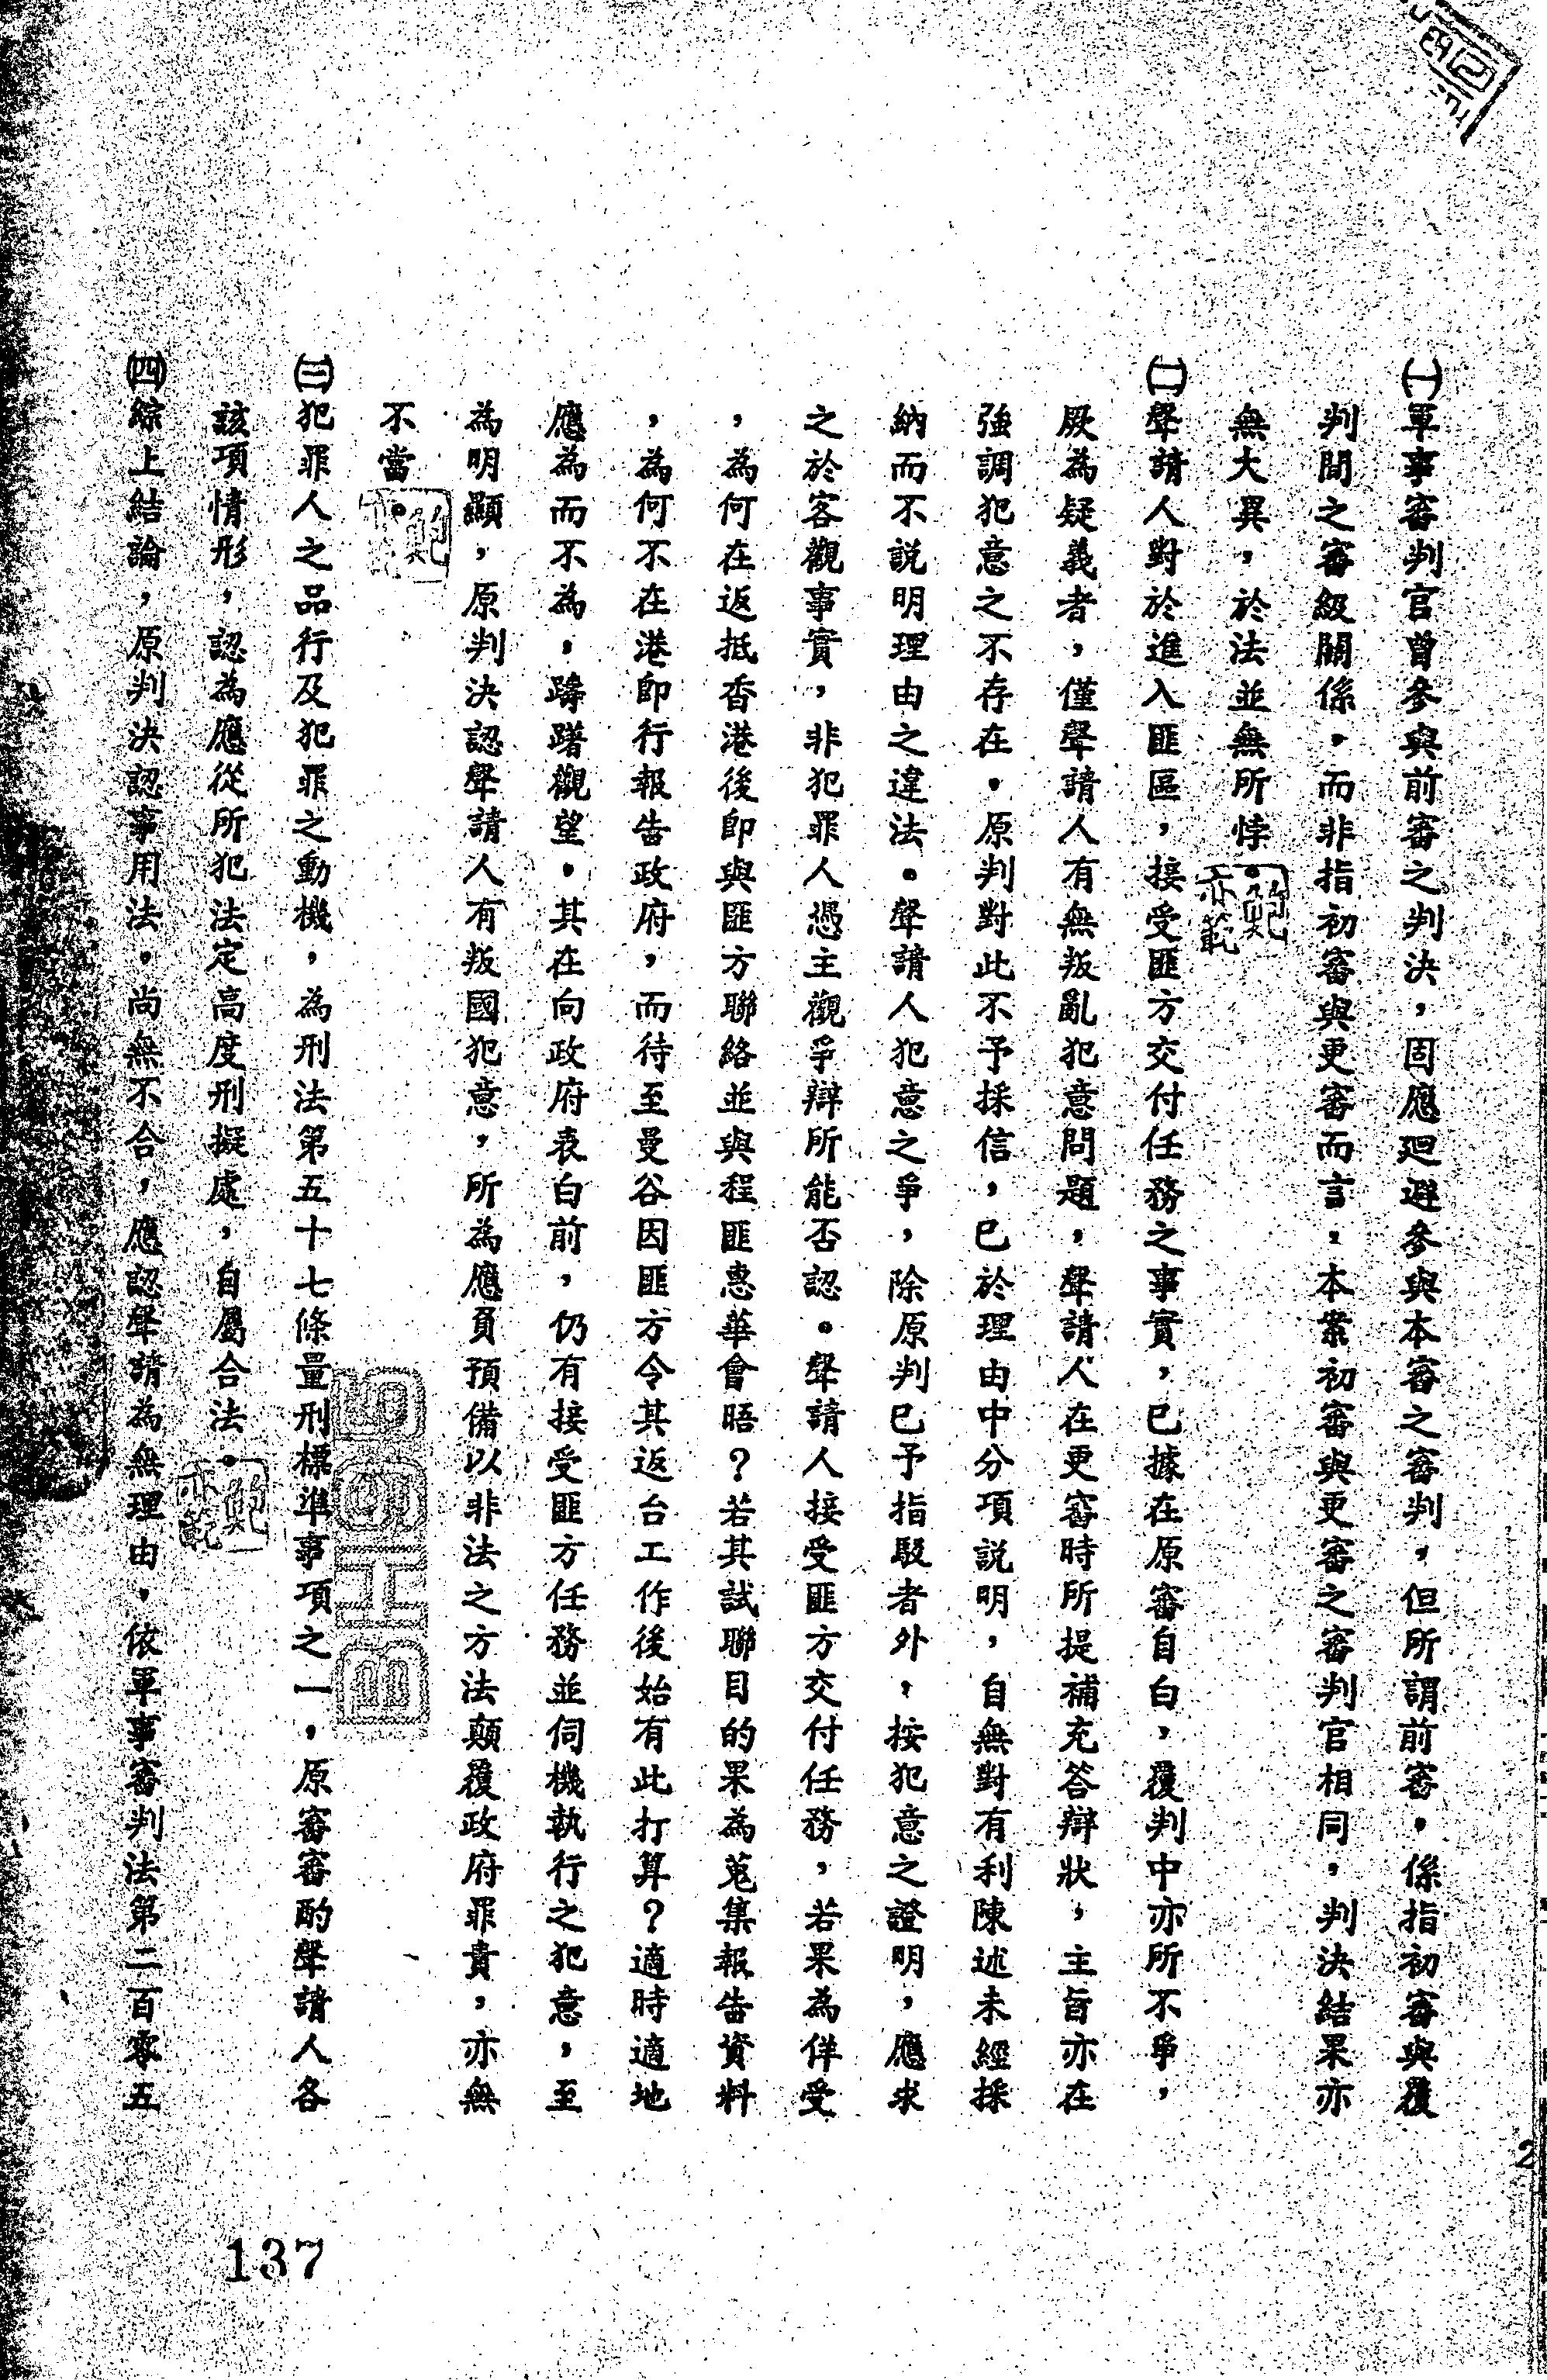 ㈠軍事審判官曾參與前審之判決，固應廻避參與本審之審判，但所謂前審，係指初審與覆
判間之審級關係，而非指初審與更審而言，本案初審與更審之審判官相同，判決結果亦
無大異，於法並無所悖。
㈡聲請人對於進入匪區，接受匪方交付任務之事實，已據在原審自白，覆判中亦所不爭，
厥為疑義者，僅聲請人有無叛亂犯意問題，聲請人在更審時所提補充答辯狀，主旨亦在
強調犯意之不存在。原判對此不予採信，已於理由中分項說明，自無對有利陳述未經採
納而不說明理由之違法。聲請人犯意之爭，除原判已予指駁者外，按犯意之證明，應求
之於客觀事實，非犯罪人憑主觀爭辯所能否認。聲請人接受匪方交付任務，若果為佯受
，為何在返抵香港後即與匪方聯絡並與程匪惠華會晤？若其試聯目的果為蒐集報告資料
，為何不在港即行報告政府，而待至曼谷因匪方令其返台工作後始有此打算？適時適地
應為而不為，躊躇觀望。其在向政府表白前，仍有接受匪方任務並伺機執行之犯意，至
為明顯，原判決認聲請人有叛國犯意，所為應負預備以非法之方法顛覆政府罪責，亦無
不當。
㈢犯罪人之品行及犯罪之動機，為刑法第五十七條量刑標準事項之一，原審審酌聲請人各
該項情形，認為應從所犯法定高度刑擬處，自屬合法。
㈣綜上結論，原判決認事用法，尚無不合，應認聲請為無理由，依軍事審判法第二百零五
2
137